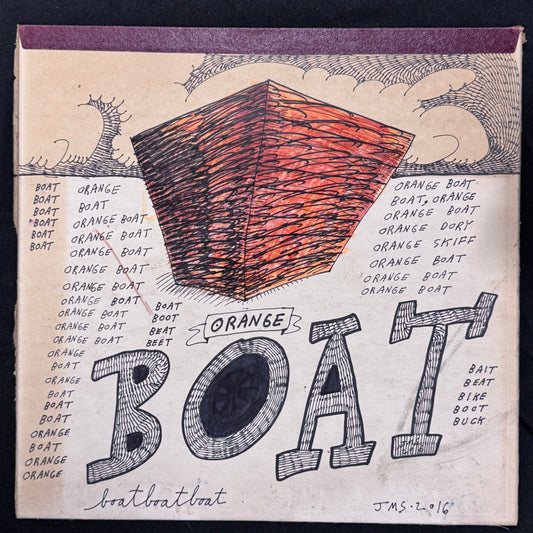 BOAT
BOAT
BOAT
BOAT
BOAT
BOAT
ORANGE
BOAT
ORANGE BOAT
ORANGE BOAT
ORANGE BOAT
ORANGE BOAT
ORANGE BOAT
ORANGE BOAT
ORANGE BOAT
ORANGE BOAT
ORANGE BOAT
ORANGE
BOAT
ORANGE
BOAT
BOAT
BOAT
ORANGE
BOAT
ORANGE
ORANGE
BOAT
BOOT
BEAT
BEET
ORANGE BOAT
BOAT, ORANGE
ORANGE BOAT
ORANGE DORY
ORANGE SKIFF
ORANGE BOAT
ORANGE BOAT
ORANGE BOAT
ORANGE
BOAT
BAIT
BEAT
BIKE
BOOT
BUCK
boatboatboat
JMS · 2016